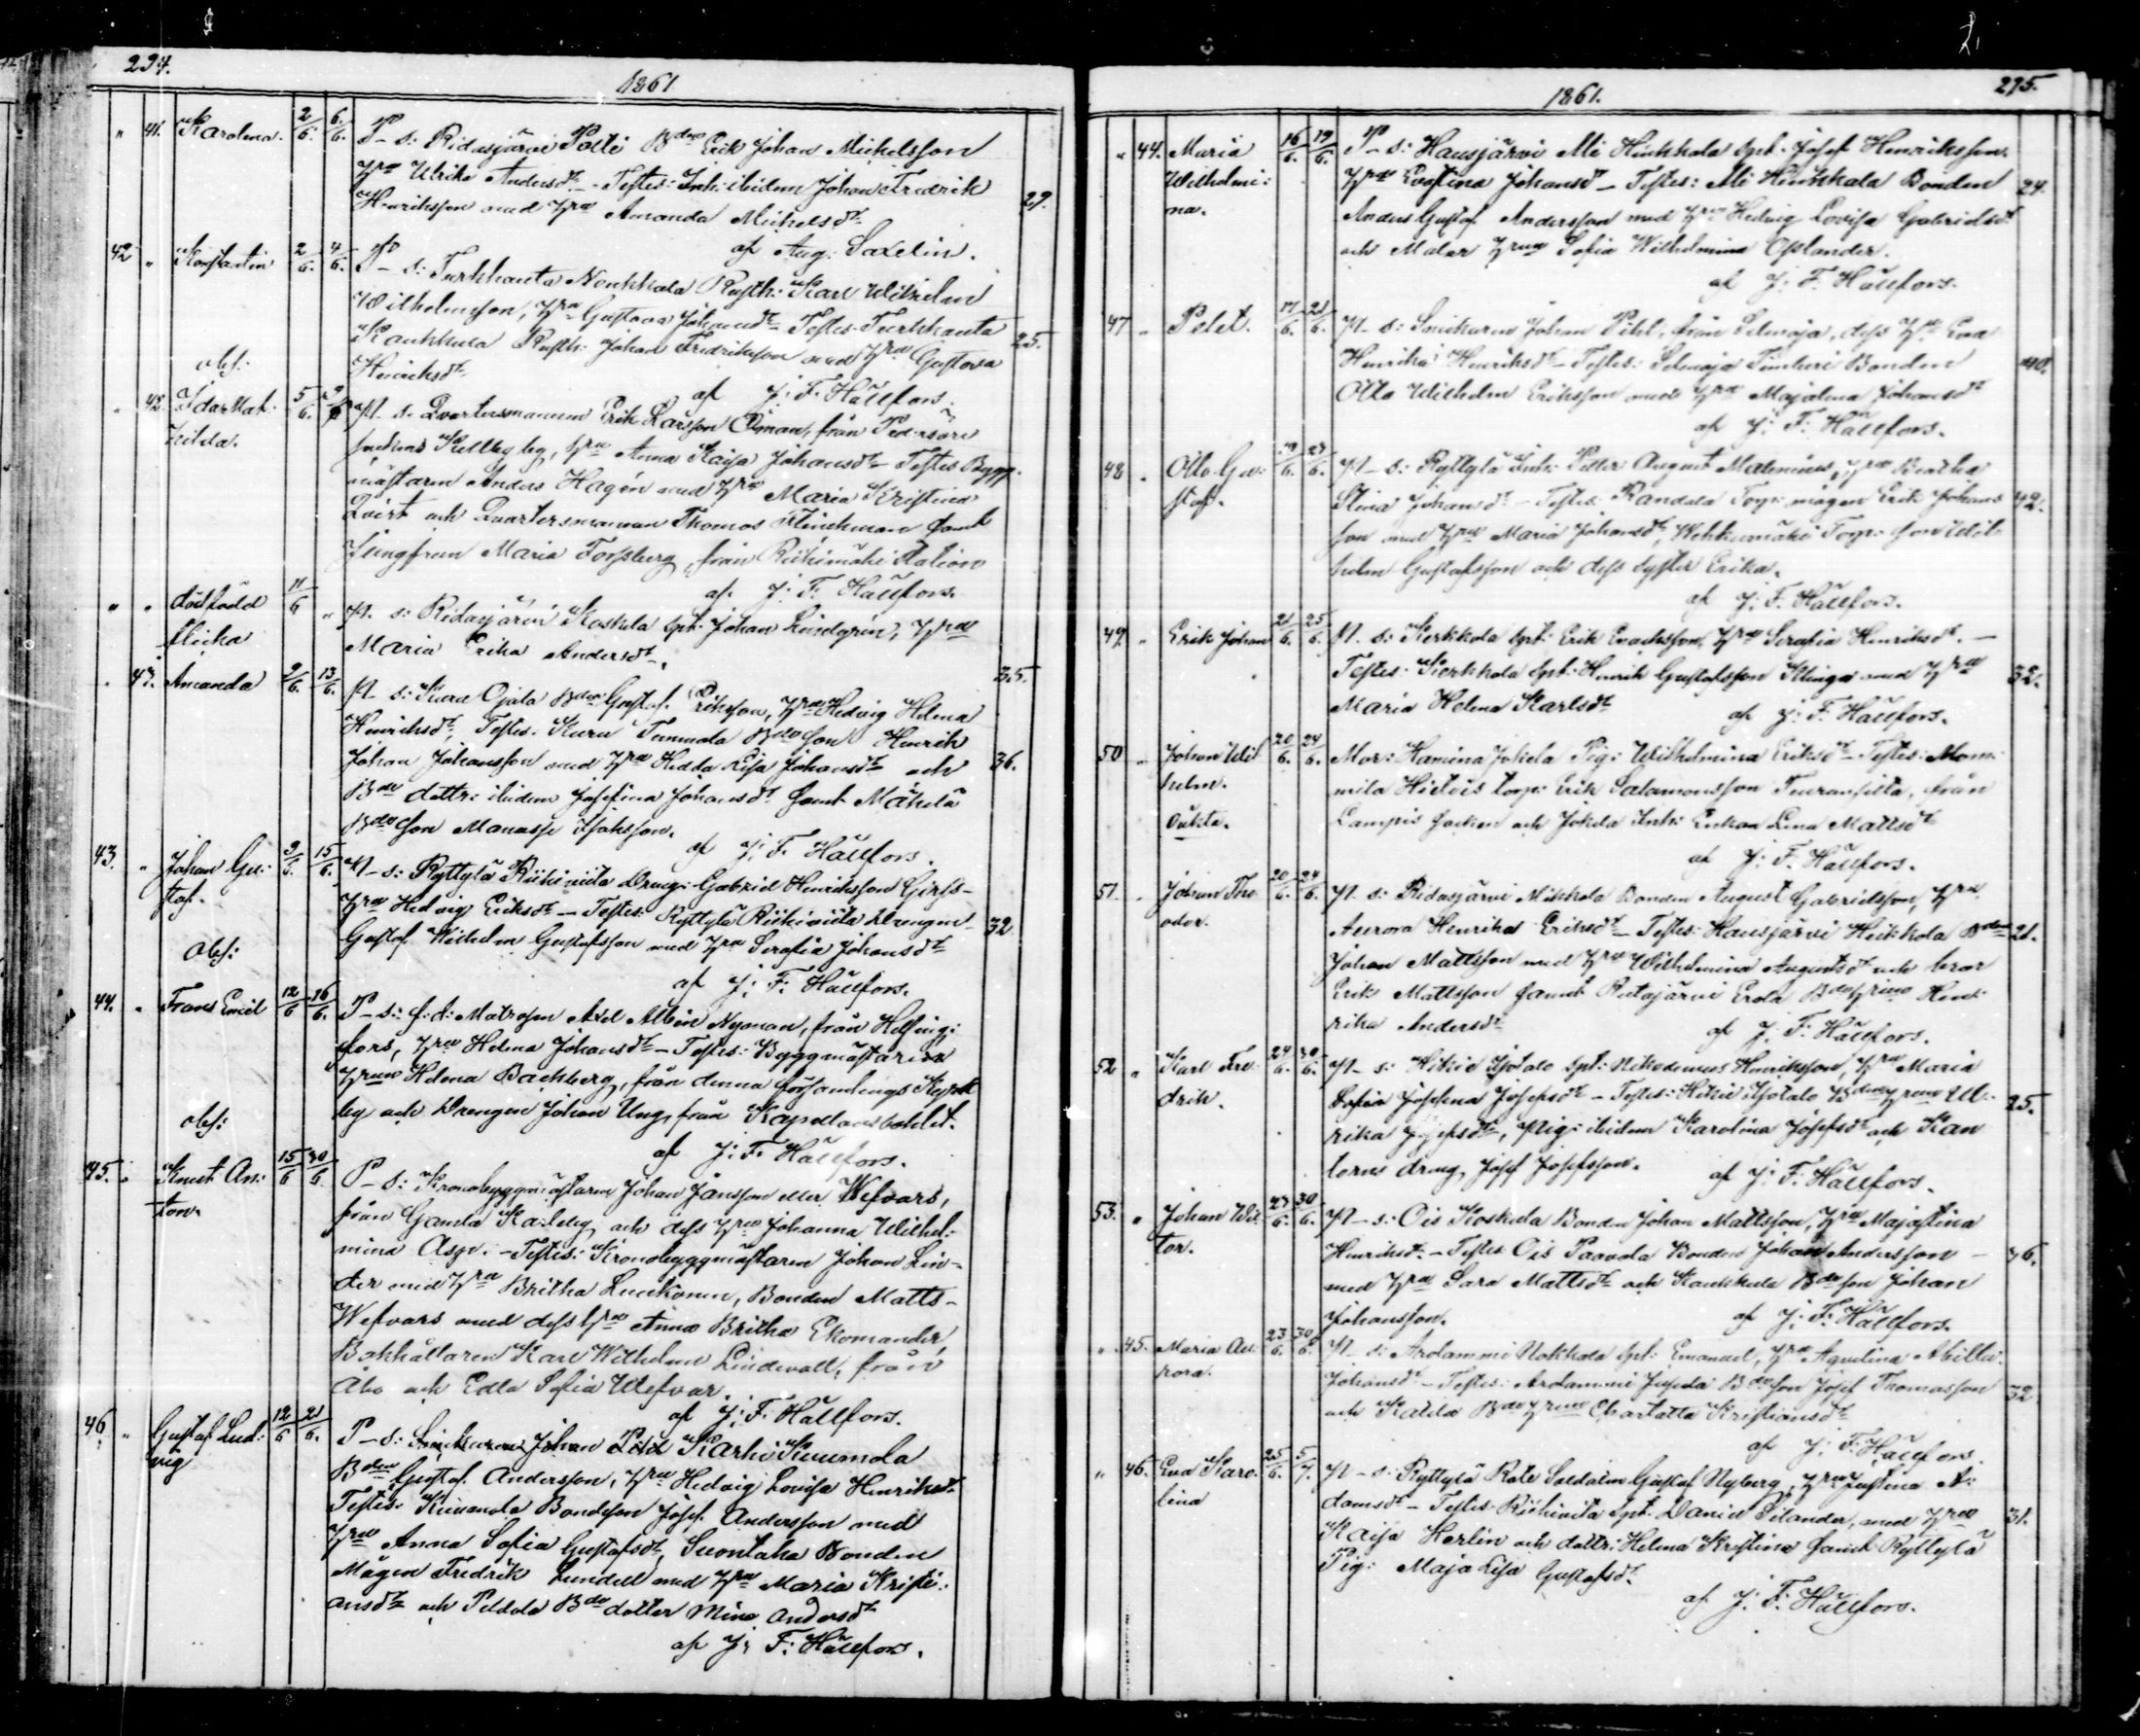 294.
1861
„ 41. Karolina. 2/6. 6./6. P - s: Ridasjärvi Polli Bden Erik Johan Michelsson
Hru Ulrika Andersdr. - Testes: Inh: ibidem Johan Fredrik
Henriksson med Hru Amanda Michelsdr. 29.
af Aug. Saxelin.
42 „ Konstantin 2/6. 4/6. P - s: Turkhauta Nonkkala Rusth: Karl Wilhelm
Wilhelmsson, Hru Gustava Johansdr. Testes: Turkhauta
Kaukkala Rusth: Johan Fredriksson med Hru Gustava 25.
Henriksdr.
obs:
af J: F: Hällfors.
„ 42. Ida Mat: 5/6. 9/6 P. s. Qvartersmannen Erik Larsson Öman, från Pedersöre
hilda. socken, Hru Anna Kajsa Johansdr - Testes Bygg-
mästaren Anders Hagén med Hru Maria Kristina
Qvist och Qvartersmannen Thomas Klinckman samt
Jungfrun Maria Forsberg, från Riihimäki Station
af J: F: Hällfors.
„ „ dödfödd 11/6 „ P. s: Ridasjärvi Koskela Spt: Johan Lindgrén, Hru
flicka Maria Erika Andersdr. 35.
„ 43. Amanda 9/6. 13/6. P - s: Kuru Ojala Bden Gustaf Eriksson, Hru Hedvig Helena
Henriksdr. Testes: Kuru Tummola Bdeson Henrik
Johan Johansson med Hru Hedda Lisa Johansdr och 36.
Bde dottr: ibidem Josefina Johansdr samt Mäkelä
Bdeson Manasse Isaksson.
af J: F. Hällfors.
43. „ Johan Gu: 9/6. 15/6. P - s: Ryttylä Riihiviita Dreng: Gabriel Henriksson Girss-
staf. Hru Hedvig Eriksdr - Testes: Ryttylä Riihiviita Drengen 32
Gustaf Wilhelm Gustafsson med Hru Serafia Johansdr
Obs:
af J: F: Hällfors.
44. „ Frans Emil 12/6 16/6. P - s: f. d: Matrosen Axel Albin Nyman, från Helsing:
fors, Hru Helena Johansdr - Testes: Byggmästaren
Hrun Helena Backberg, från denna församlings Kyrko
by och Drengen Johan Ung, från Kapellansbolet.
obs:
af J: F: Hällfors.
45. „ Knut An: 15/6 30/6. P - s: Kronobyggmästaren Johan Jansson eller Wefvars,
ton. från Gamla Karleby och dess Hru Johanna Wilhel:
mina Asp. - Testes: Kronobyggmästaren Johan Lin-
der med Hru Britha Luukonen, Bonden Matts-
Wefvars med dess Hru Anna Britha Ekomander
Bokhållaren Karl Wilhelm Lindevall, från
Åbo och Edla Sofia Wefvar.
af J: F: Hällfors.
46 „ Gustaf Lud: 12/6 21/6. P - s: Smickaren Johan Pihl Karhi Kuumola
vig Bden Gustaf Andersson, Hru Hedvig Lovisa Henriksdr.
Testes: Kuumola Bondeson Josef Andersson med
Hru Anna Sofia Gustafsdr, Suontaka Bonden
Mågen Fredrik Lundell med Hru Maria Kristi:
ansdr och Peldola Bde dotter Mina Andersdr
af J: F: Hällfors.
1861.
295.
„ 44. Maria 16/6. 19/6. P - s: Hausjärvi Ali Hinkkala Spt. Josef Henriksson.
Wilhelmi: Hru Evastina Johansdr - Testes: Ali Hinkkala Bonden 24.
na. Anders Gustaf Andersson med Hru Hedvig Lovisa Gabrielsdr
och Målar Hrun Sofia Wilhelmina Oslander.
af J: F. Hällfors.
47 „ Petet. 17/6. 21/6. P. s: Smickaren Johan Pihl, från Selmaja, dess Hru Eva
Henrika Henriksdr - Testes: Selmaja Timberi Bonden 40.
Otto Wilhelm Eriksson med Hru Majalena Johansdr
af J: F: Hällfors.
48 „ Otto Gu: 6. 23/6. P - s: Ryttylä Inh: Petter August Malenius, Hru Beatha
staf. Stina Johansdr - Testes: Kandela Torp: mågen Erik Johans 42.
son med Hru Maria Johansdr, Wehkamäki Torp: son Wil-
helm Gustafsson och dess syster Erika.
af J: F. Hällfors.
49. „ Erik Johan 21/6. 25/6. P. s: Kerkkola Spt: Erik Enocksson, Hru Serafia Henriksdr. -
Testes: Kerkkola Spt: Henrik Gustafsson Klinga med Hru 32.
Maria Helena Karlsdr
af J: F. Hällfors.
50 „ Johan Wil 20/6. 24/6. Mor: Kamina Jokela Pig: Wilhelmina Eriksdr - Testes: Mom:
helm. mila Hietois torp: Erik Salamonsson Tuuransilta, från
Oäkta. Lampis socken och Jokela Inh: Enkan Lena Mattsdr
af J: F. Hällfors.
51. „ Johan The 20/6. 24/6. P. s: Ridasjärvi Mikkola Bonden August Gabrielsson, Hru
odor. Aurora Henrika Eriksdr - Testes: Hausjärvi Heikkola Bden 21.
Johan Mattsson med Hru Wilhelmina Augustsdr och bror
Erik Mattsson samt Rutajärvi Erola Bde Hrun Hen:
rika Andersdr
af J: F. Hällfors.
52 „ Karl Fre: 24/6. 30/6. P - s: Hikiä Isotalo Spt: Nikodemus Henriksson, Hru Maria
drik. Sofia Josefina Josefsdr - Testes: Hikiä Isotalo Bonde Hrun Ul: 25.
rika Josefsdr, Pig: ibidem Karolina Josefsdr och Kan
torns dreng Josef Josefsson.
af J: F. Hällfors.
53. „ Johan Wik 27/6. 30/6. P - s: Ois Koskela Bonden Johan Mattsson, Hru Majastina
tor. Henriksdr. - Testes Ois Paavola Bonden Johan Andersson - 36.
med Hru Sara Mattsdr och Kaukkela Bdeson Johan
Johansson.
af J: F: Hällfors.
„ 45. Maria Au: 23/6. 30/6. P - s: Arolammi Nokkala Spt: Emanuel, Hru Aqvilina Abilla:
rora. Johansdr. - Testes: Arolammi Jussila Bdeson Josef Thomasson 32
och Katila Bde Hrun Charlotta Kristiansdr
af J: F: Hällfors.
„ 46. Eva Karo: 25/6. 5/7. P - s: Ryttylä Rote Soldaten Gustaf Nyberg, Hru Justina A:
lina damsdr - Testes: Riihiviita Spt: Daniel Silander, med Hru 31.
Kajsa Herlin och dottr: Helena Kristina samt Ryttylä
Pig: Maja Lisa Gustafsdr.
af J: F: Hällfors.